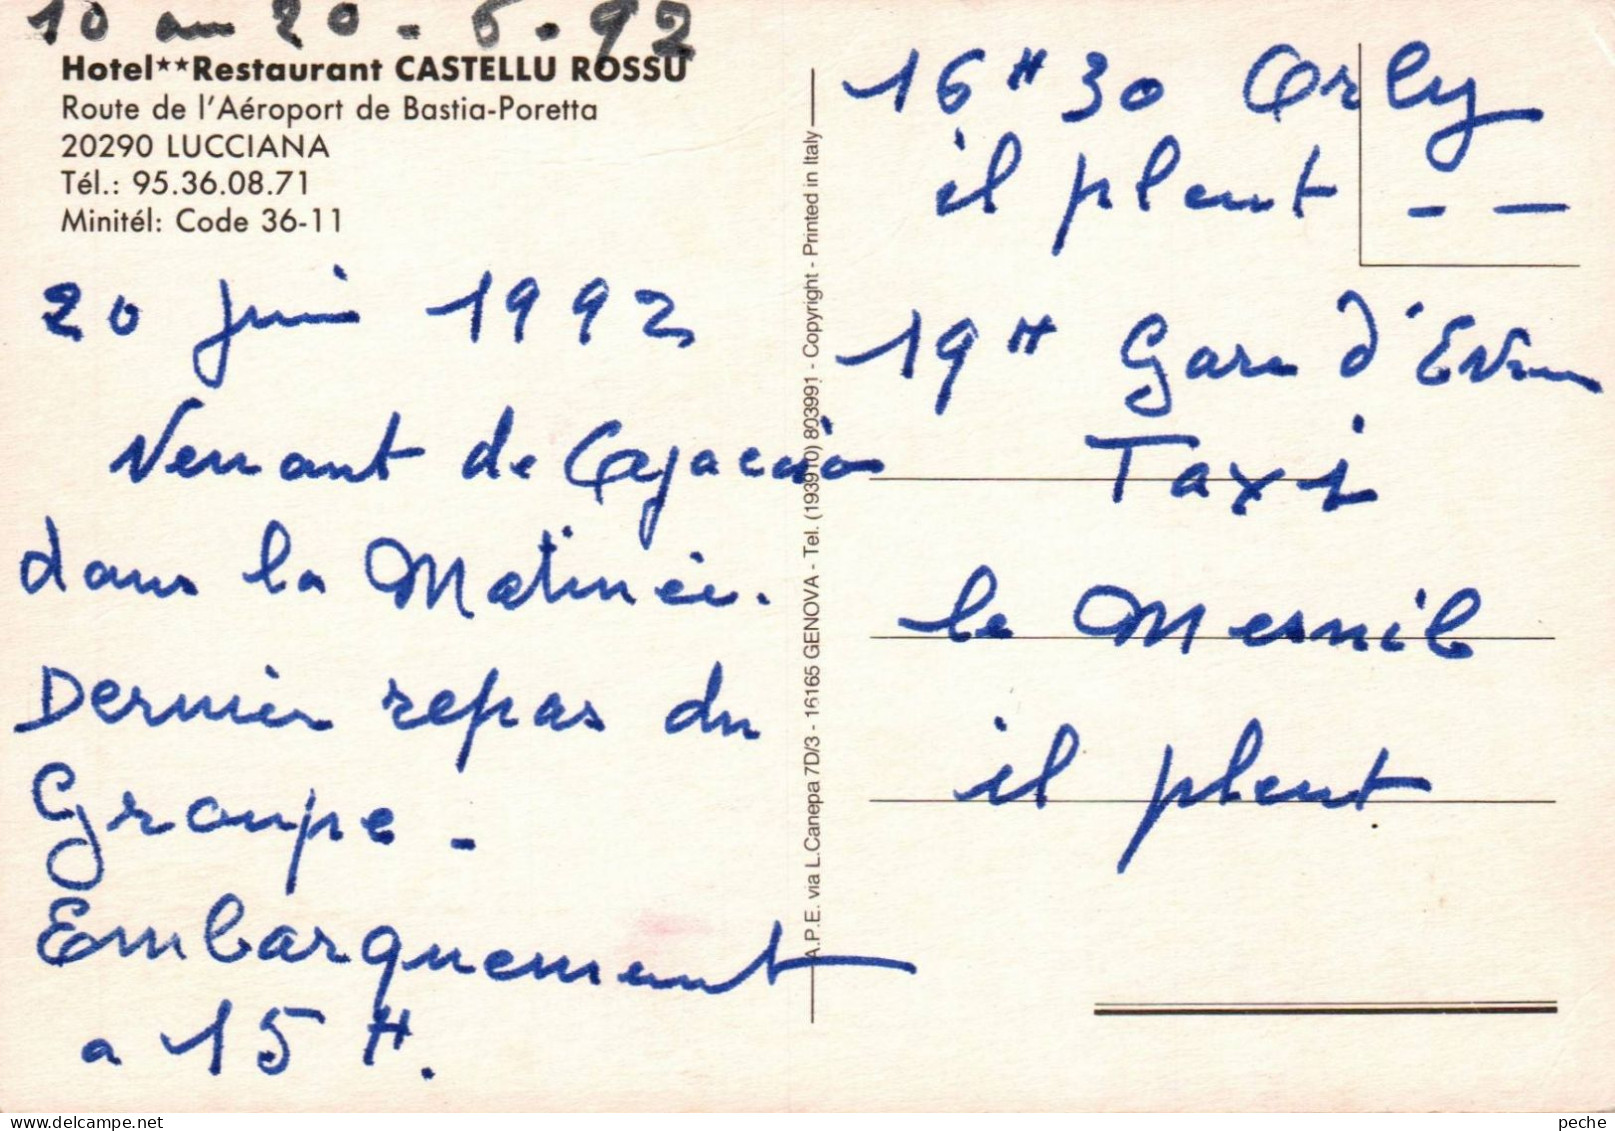 10 au 20 - 6 - 92
Hotel**Restaurant CASTELLU ROSSU
Route de l'Aéroport de Bastia-Poretta
20290 LUCCIANA
Tél.: 95.36.08.71
Minitél: Code 36-11
20 juin 1992
Venant de Cajaccio
dans la Matinée.
Dernier repas du
Groupe -
Embarquement
a 15 H.
A.P.E. via L.Canepa 7D/3 - 16165 GENOVA - Tel. (193910) 803991 - Copyright - Printed in Italy
16 H 30 Orly
il pleut - -
19 H Gare d'Evreux
Taxi
le Mesnil
il pleut
delcampe.net
peche